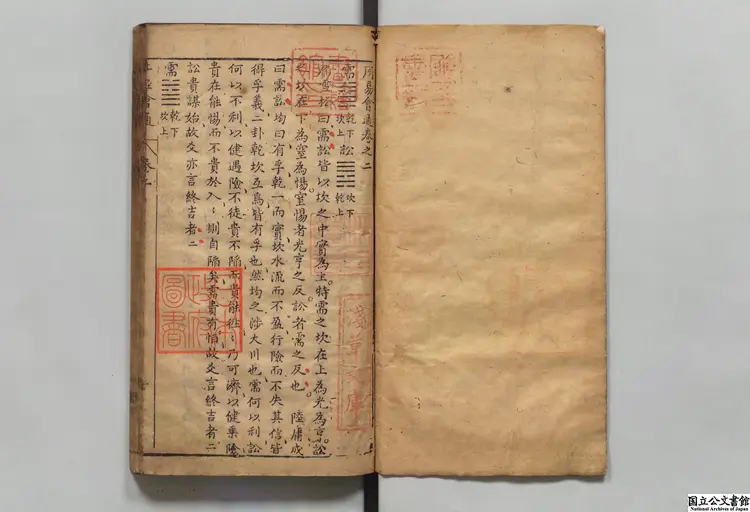 周易會通卷之二
需 ䷄ 乾下 坎上 訟 ䷅ 坎下 乾上
雪松曰需訟皆以坎之中實為主特需之坎在上為光為亨訟
之坎在下為窒為惕窒惕者光亨之反訟者需之反也 陸庸成
曰需訟均曰有孚乾一而實坎水流而不盈行險而不失其信皆
得孚義二卦乾坎互焉皆有孚也然均之涉大川也需何以利訟
何以不利以健遇險不徒貴不陷而貴能乃可濟以健乗險
貴在能惕而不貴於入〻則自陷矣需貴有恒故爻言終吉者二
訟貴謀始故爻亦言終吉者二
需 ䷄ 乾下 坎上
會通
卷二
淺草文庫
日本政府圖書
国立公文書館
National Archives of Japan